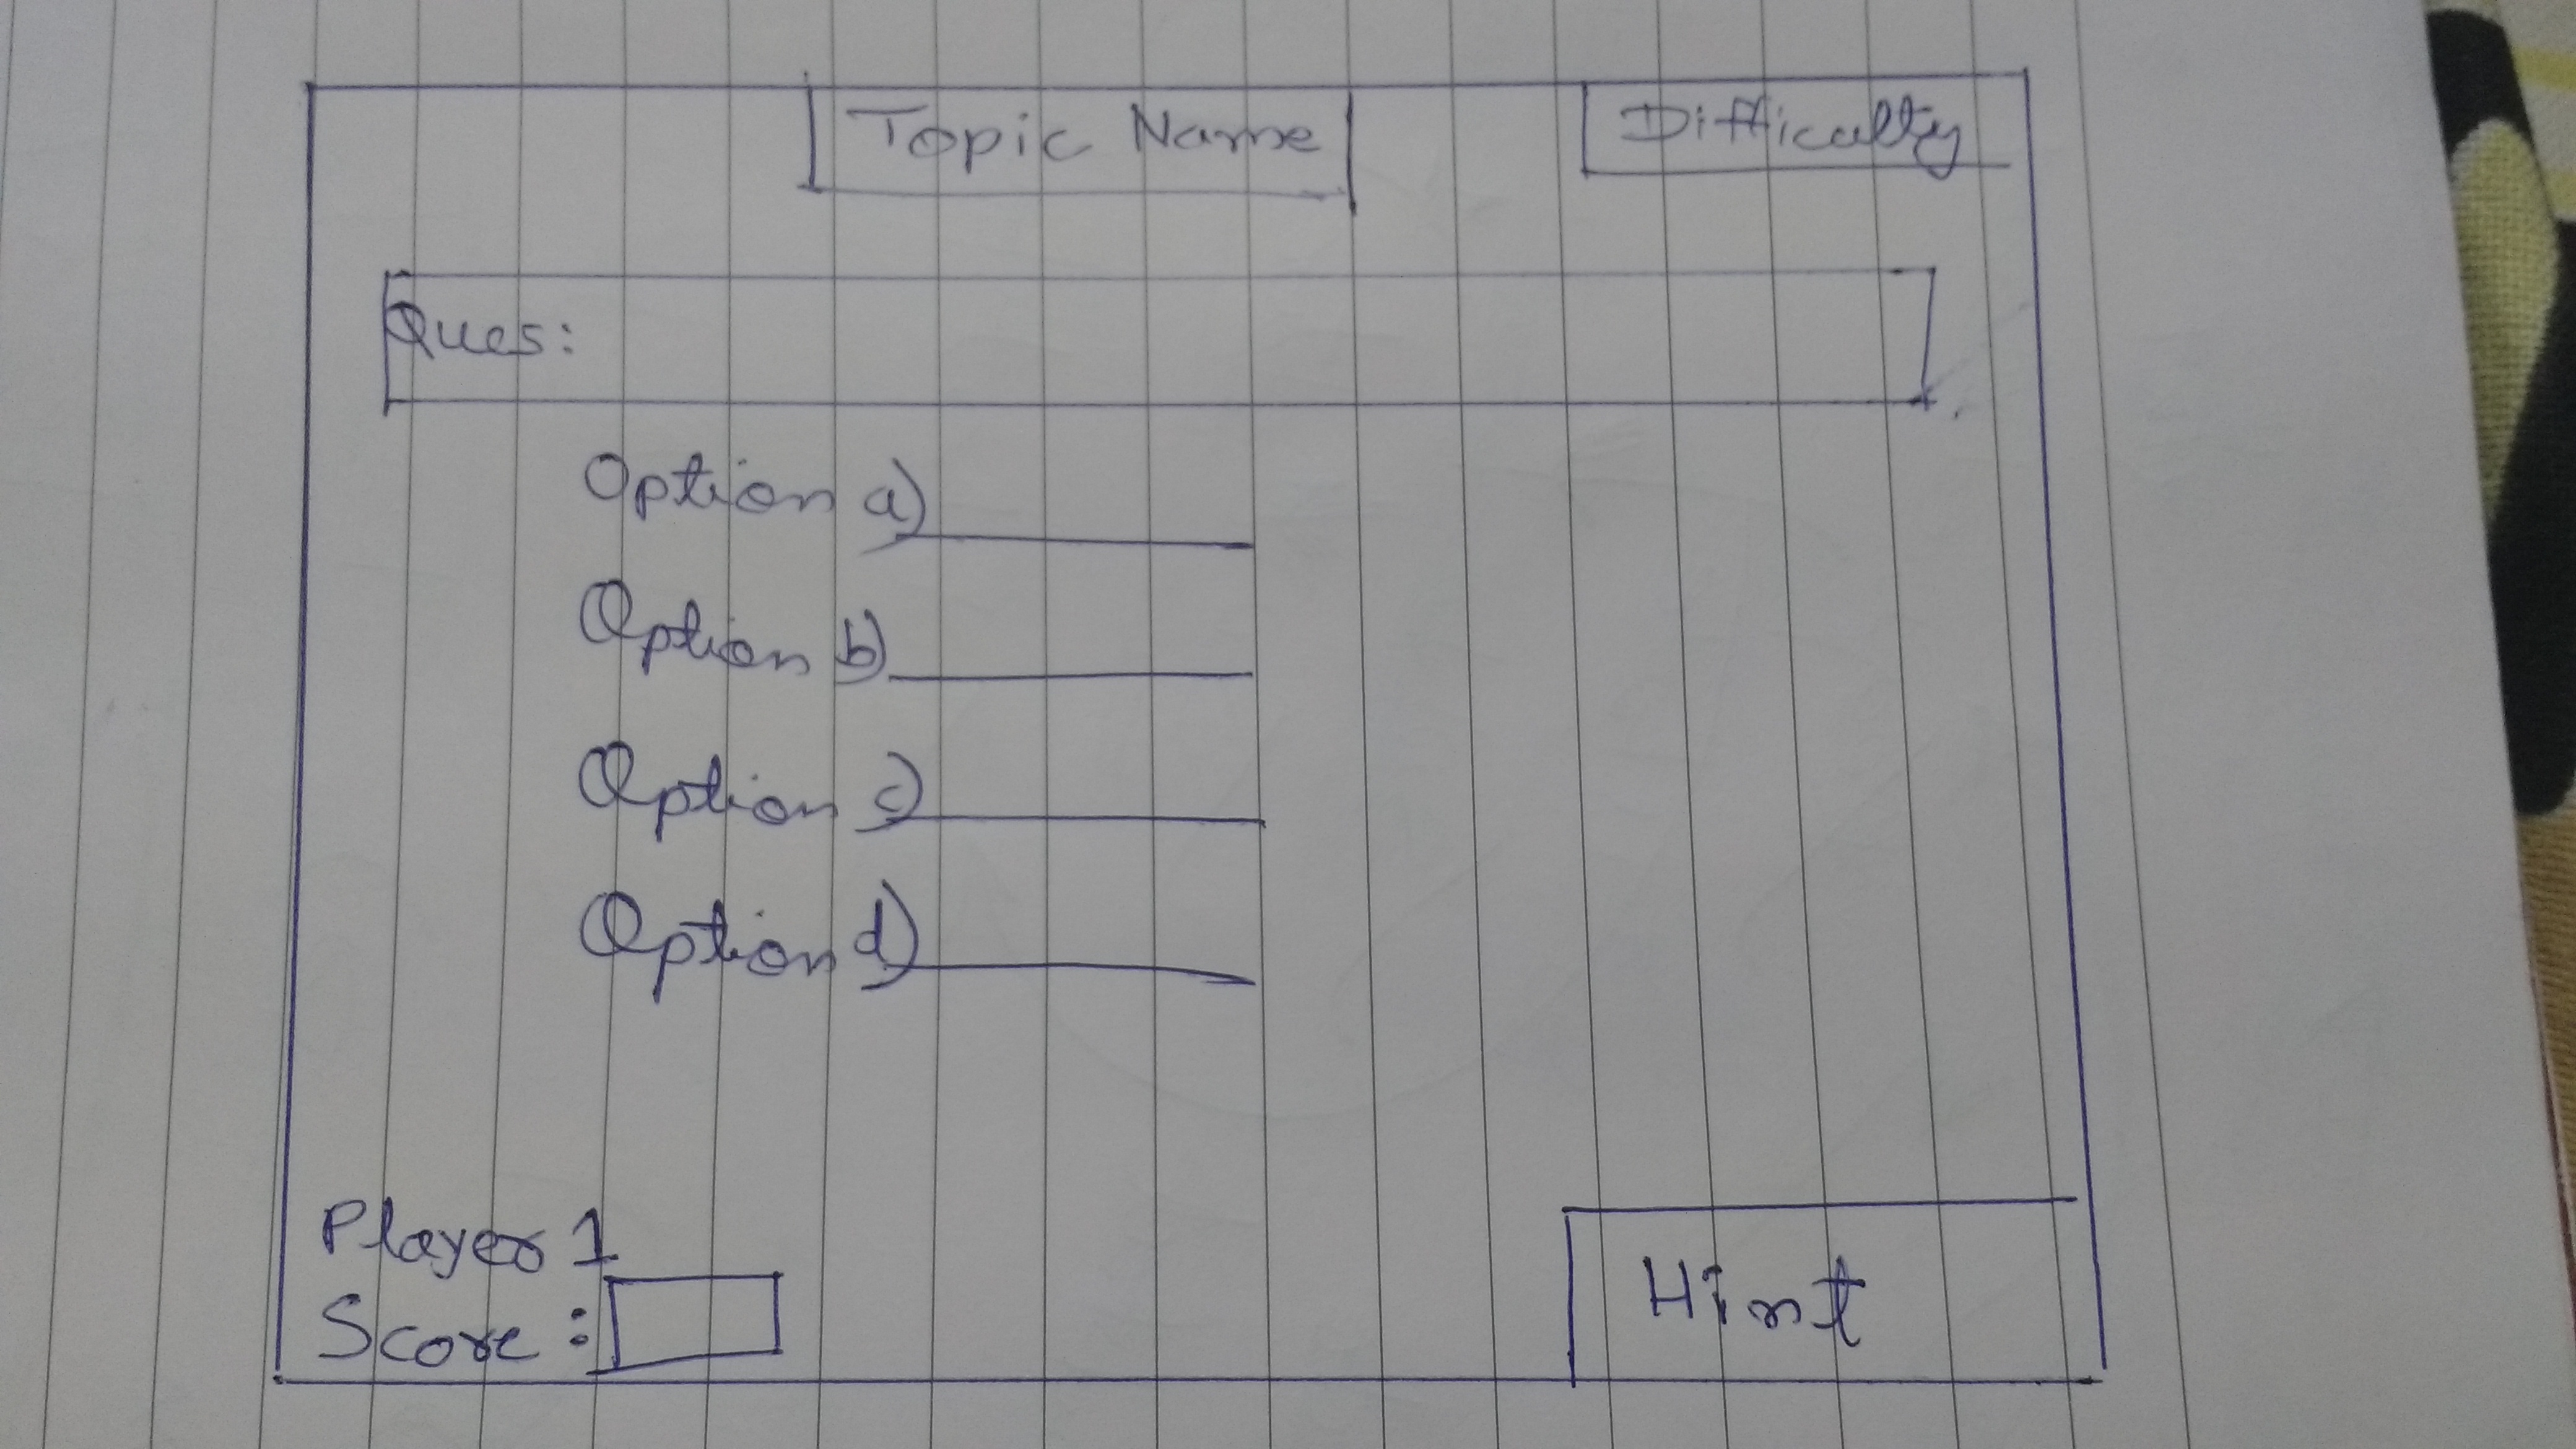 Topic Name
Difficulty
Ques:
Option a)
Option b)
Option c)
Option d)
Player 1
Score :
Hint